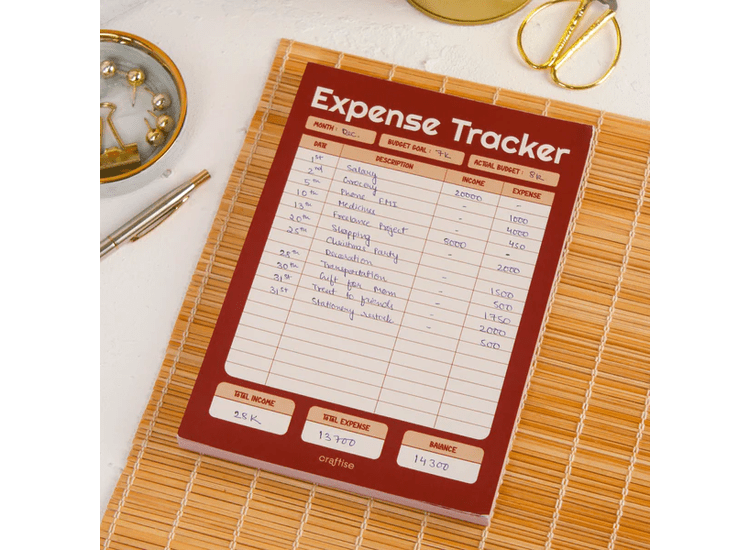 Expense Tracker
MONTH : Dec. BUDGET GOAL : 7K ACTUAL BUDGET : 8K
DATE DESCRIPTION INCOME EXPENSE
1st Salary 20000 -
2nd Grocery - 1000
5th Phone EMI - 4000
10th Medicine - 450
13th Freelance Project 5000 -
20th Shopping - 2000
25th Christmas Party
Decoration - 1500
28th Transportation - 500
30th Gift for Mom - 1750
31st Treat to friends - 2000
31st Stationary - 500
TOTAL INCOME TOTAL EXPENSE BALANCE
28K 13700 14300
craftise